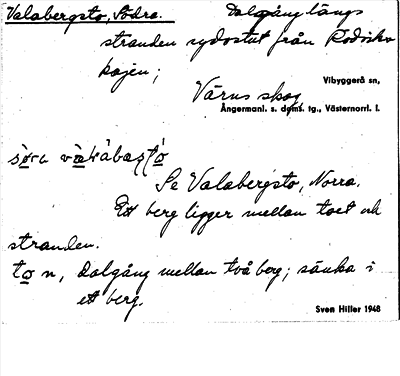 Valabergsto, Södra. Dalgång längs
stranden sydostut från Rodiska
kajen;
Vibyggerå sn,
Värns skog
Ångermanl. s. doms. tg., Västernorrl. l.
Se Valabergsto, Norra.
Ett berg ligger mellan toet och
stranden.
to n, dalgång mellan två berg; sänka i
ett berg.
Sven Hiller 1948